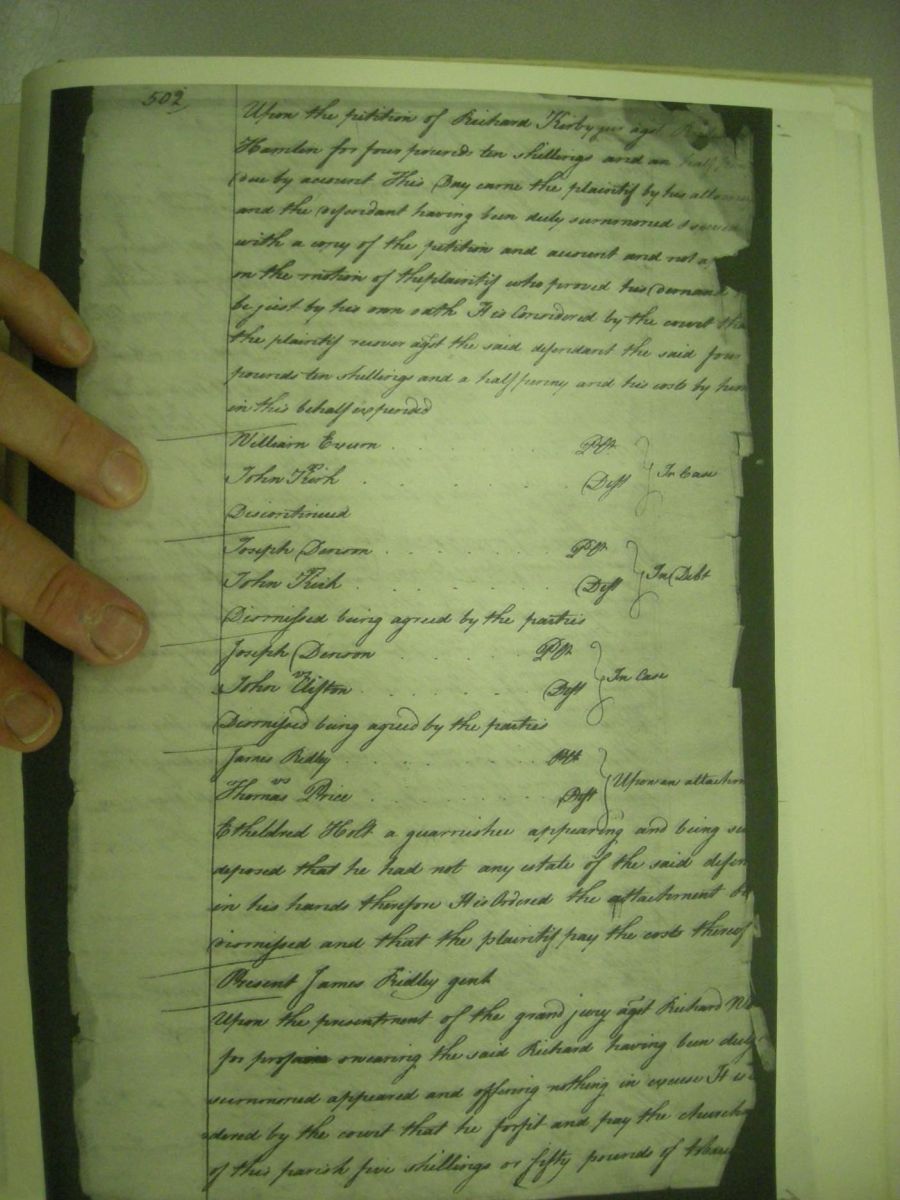 502
Upon the petition of Richard Kirby gent agst
Hamlin for four pounds ten shillings and an half
Due by account This Day came the plaintif by his attorney
and the defendant having been duely summoned &
with a copy of the petition and account and not
on the motion of the plaintif who proved his Demand
be just by his own oath It is Considered by the court that
the plaintif recover agst the said defendant the said four
pounds ten shillings and a half penny and his costs by him
in this behalf expended
William Exum Plt
John Kirk Deft In Case
Discontinued
Joseph Denson Plt
John Deft In Debt
Dismissed being agreed by the parties
Joseph Denson Plt
vs
John Clifton Deft In Case
Dismissed being agreed by the parties
James Ridley Plt
vs
Thomas Price Deft Upon an attachm
Etheldred Holt a guarnishee appearing and being
deposed that he had not any estate of the said defen
in his hands therefore It is Ordered the attachment
dismissed and that the plaintif pay the costs thereof
Present James Ridley gent
Upon the presentment of the grand jury agst Richard
for profane swearing the said Richard having been duely
summoned appeared and offering nothing in excuse It is
dered by the court that he forfit and pay the church
of this parish five shillings or fifty pounds of tobac